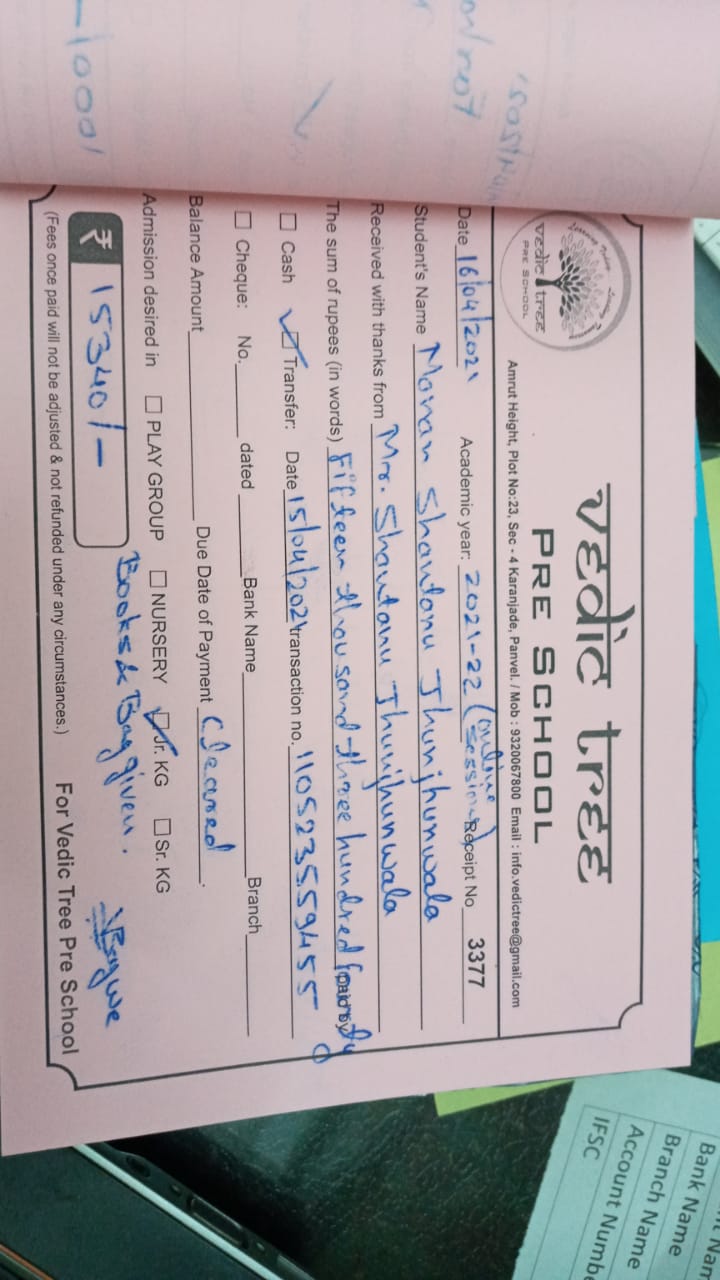 vedic tree
PRE SCHOOL
vedic tree
PRE SCHOOL
Amrut Height, Plot No:23, Sec - 4 Karanjade, Panvel. / Mob : 9320067800 Email : info.vedictree@gmail.com
Date 16/04/2021 Academic year: 2021-22 (online session) Receipt No 3377
Student's Name Manan Shantanu Jhunjhunwala
Received with thanks from Mr. Shantanu Jhunjhunwala
The sum of rupees (in words) Fifteen thousand three hundred fourty Paid by
Cash Transfer: Date 15/04/2021 transaction no. 110523559455
Cheque: No. dated Bank Name Branch
Balance Amount Due Date of Payment Cleared.
Admission desired in PLAY GROUP NURSERY Jr. KG Sr. KG
₹ 15340/- Books & Bag given.
(Fees once paid will not be adjusted & not refunded under any circumstances.) For Vedic Tree Pre School
Bank Name
Branch Name
Account Numb
IFSC